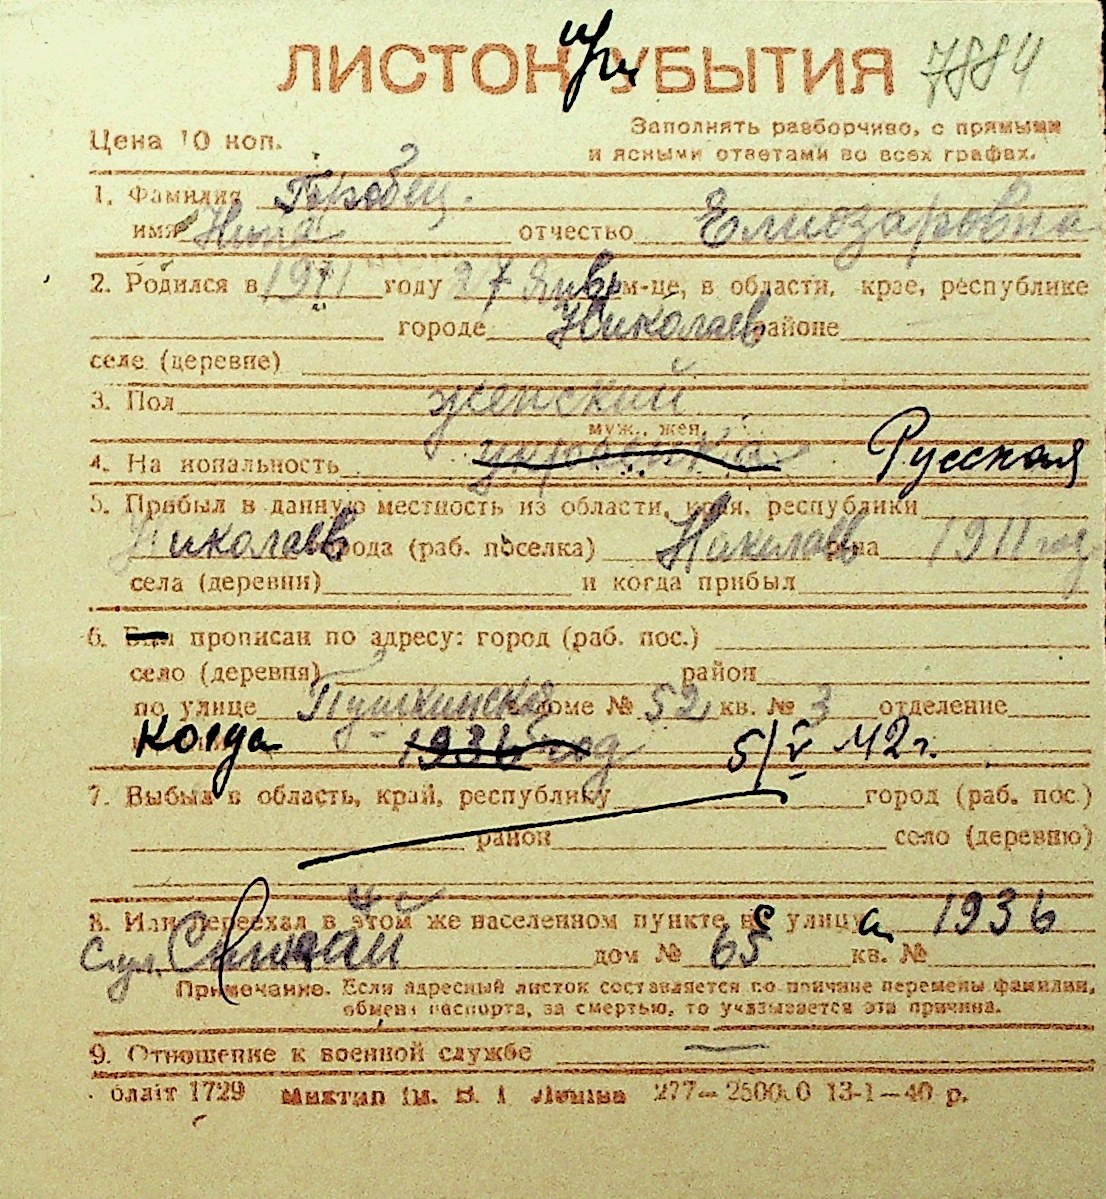 ЛИСТОК при УБЫТИЯ 7884
Цена 10 коп. Заполнять разборчиво, с прямыми
и ясными ответами во всех графах.
1. Фамилия Горобец.
имя Нина отчество Елиозаровна
2. Родился в 1911 году 27 Январ м-це, в области, крае, республике
городе Николаев районе
селе (деревне)
3. Пол женский
муж., жен.
4. Национальность украинка Русская
5. Прибыл в данную местность из области, края, республики
Николаев города (раб. поселка) Николаев она 1911 год
села (деревни) и когда прибыл
6. Был прописан по адресу: город (раб. пос.)
село (деревня) район
по улице Пушкинская доме № 52 кв. № 3 отделение
когда 1936 год 5/V 42 г.
7. Выбыл в область, край, республику город (раб. пос.)
район село (деревню)
8. Или переехал в этом же населенном пункте с улицы 1936
с ул. дом № 65 кв. №
Примечание. Если адресный листок составляется по причине перемены фамилии,
обмена паспорта, за смертью, то указывается эта причина.
9. Отношение к военной службе —
блліт 1729 Миктип ім. В. І Леніна 277—25000 13-1—40 р.